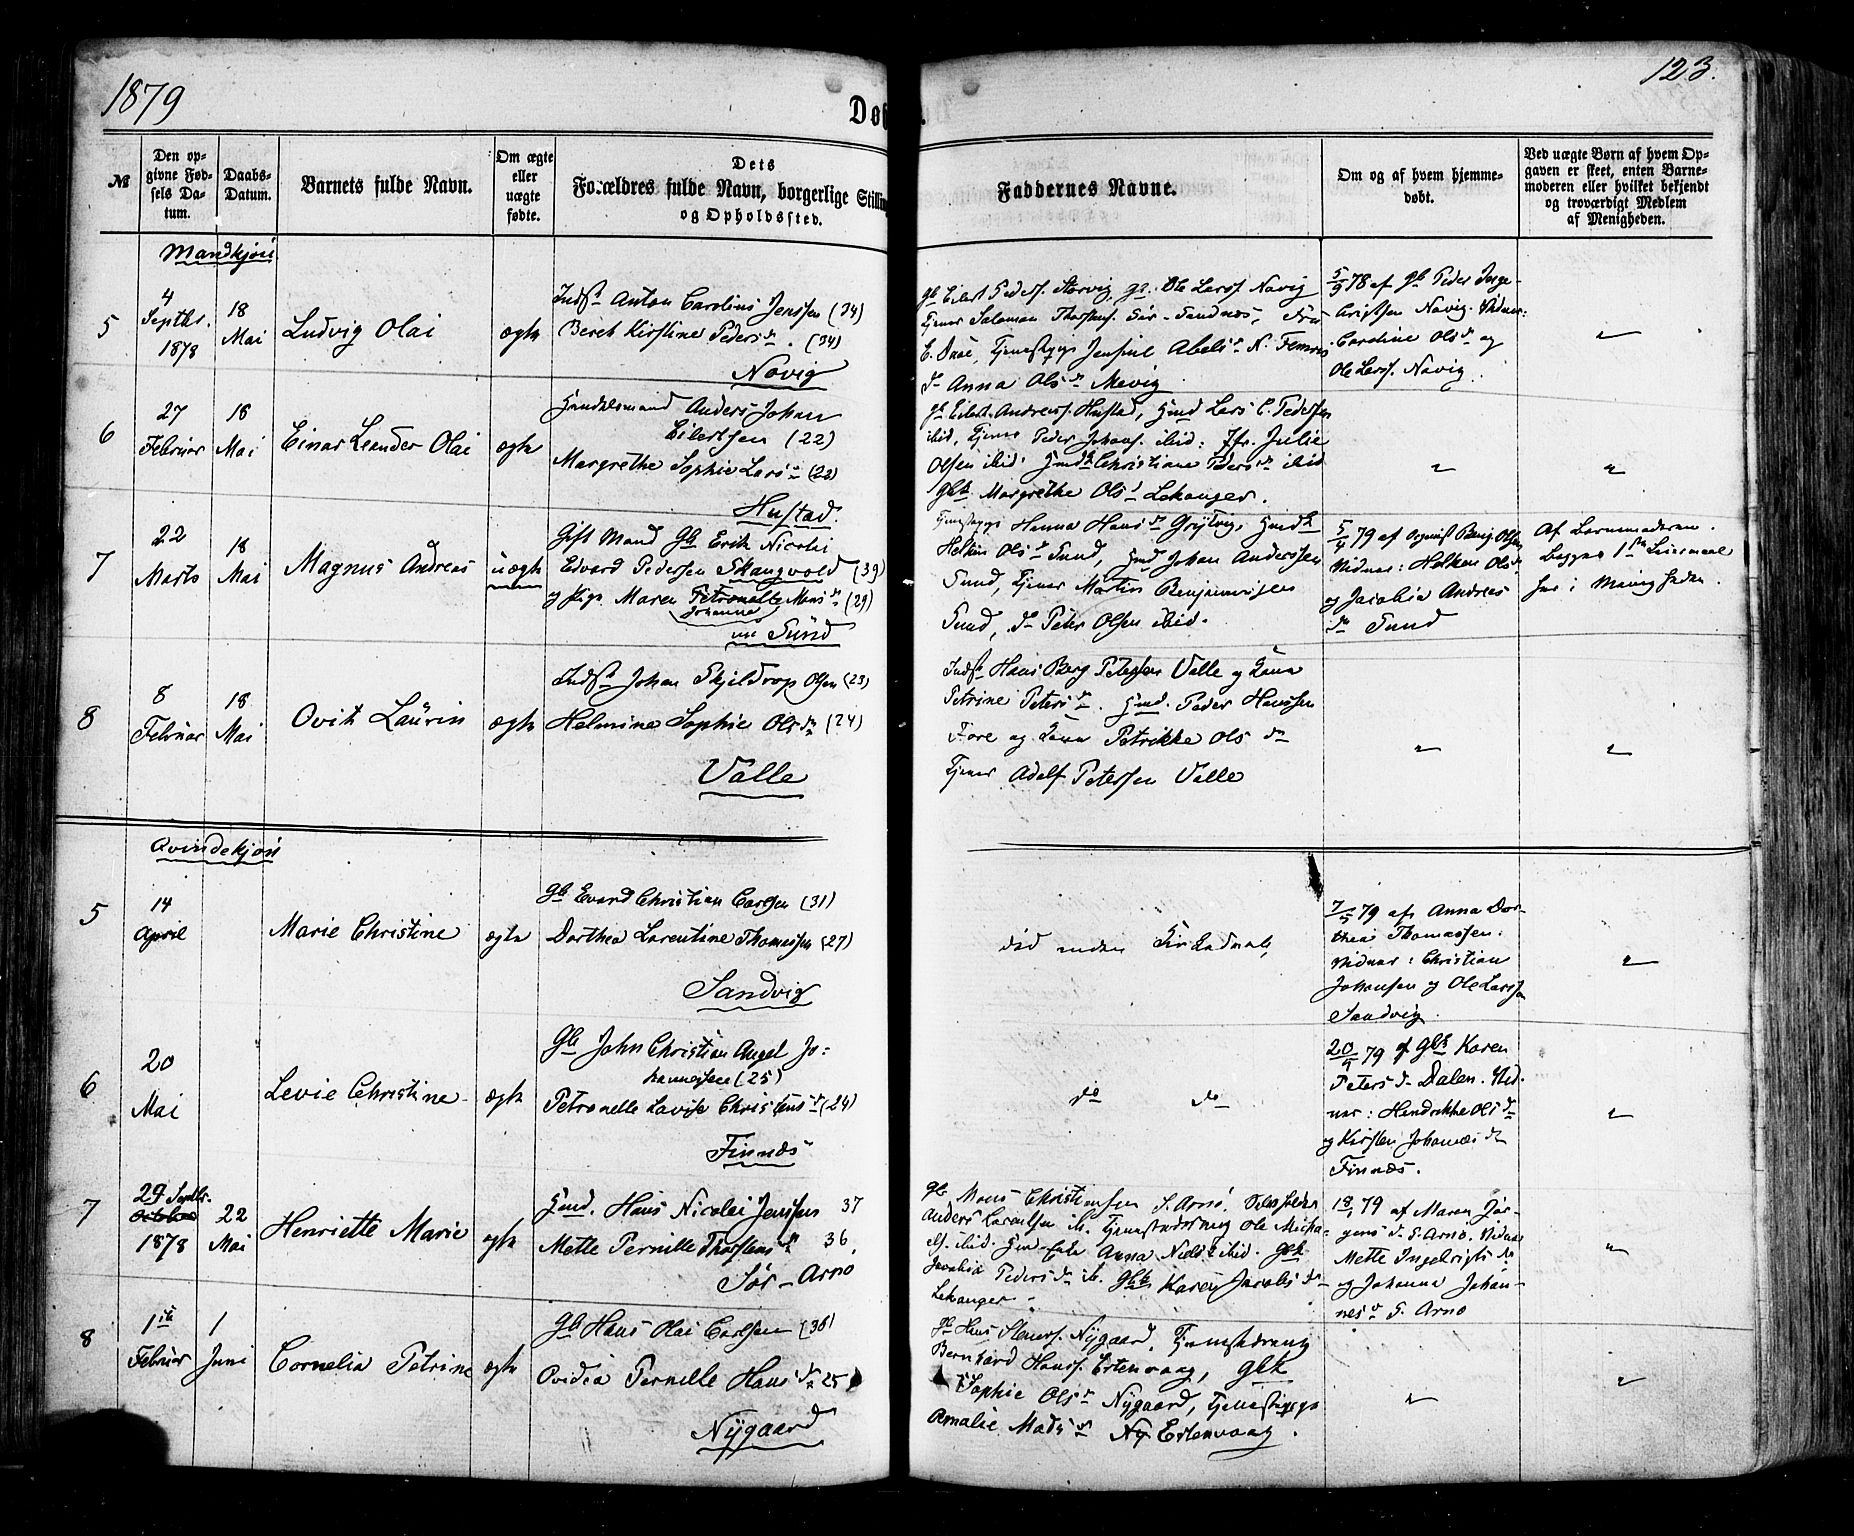 1879
123.
Døbte.
№
Den op-
givne Fød-
sels Da-
tum.
Daabs-
Datum.
Barnets fulde Navn.
Om ægte
eller
uægte
fødte.
Dets
Forældres fulde Navn, borgerlige
og Opholdssted.
Faddernes Navne.
Om og af hvem hjemme-
døbt.
Ved uægte Børn af hvem Op-
gaven er skeet, enten Barne-
moderen eller hvilket bekjendt
og troværdigt Medlem
af Menigheden.
Mandkjøn
5
4
Septbr.
1878
18
Mai
Ludvig Olai
ægte
Indst Anton Carolius Jenssen (34)
Beret Kirstine Pedersdr. (34)
Novig
gb Eilert Peders. Storvig, gb. Ole Larss. Novig
Tjener Salamon Thostens. Sør-Sandnes, Fru
E. Dase, Tjenestepge Jensine Abelsdr N. Femnes
do Anna Olsdr Mevig
5/9 78 af gb Peder Jørge-
Christsen Novig. Vidner:
Caroline Olsdr og
Ole Larss. Novig.
"
6
27
Februar
18
Mai
Einar Leander Olai
ægte
Handelsmand Anders Johan
Eilertsen (22)
Margrethe Sophie Larsdr (22)
Hustad.
gb Eilert Andreass. Hustad, Hmd Lars C. Pedersen
ibid, Tjener Peder Johans. ibid: Jfr. Julie
Olsen ibid. Hmdk Christiane Pedersdr ibid
Gbk Margrethe Olsd Lekanger.
"
"
7
22
Marts
18
Mai
Magnus Andreas
uægte
Gift Mand Gb Erik Nicolai
Edvard Pedersen Skaugvold (39)
og Pige Maren Petronelle Monsdr (29)
Johanna
nu Sund
Tjenestepge Hanna Hansdr Grytvig, Hmdk
Helkin Olsdr Sund, Hmd Johan Anderssen
Sund, Tjener Martin Benjaminsen
Sund, do Peter Olsen ibid.
5/4 79 af Organist Benj. Olsen
Vidner: Helken Olsdr
og Jacobia Andreas
dr Sund
Af Barnemoderen.
Begges 1ste Leiermaal
her i Menigheden.
8
8
Februar
18
Mai
Ovik Laurin
ægte
Indst Johan Skjeldrop Olsen (23)
Helmine Sophie Olsdr (24)
Valle
Indst Hans Berg Petersen Valle og Kone
Petrine Petersdr. Hmd. Peder Hanssen
Fore og Kone Petrikke Olsdr
Tjener Adolf Petersen Valle
"
"
Qvindekjøn
5
14
April
Marie Christine
ægte
gb Evard Christian Carlsen (31)
Dorthea Larentine Thomassen (27)
Sandvig
død uden Fir Ladnals,
7/5 79 af Anna Dor-
thea Thomassen.
Vidner: Christian
Johansen og Ole Larssen
Sandvig
"
6
20
Mai
Levie Christine
ægte
Gb John Christian Angel Jo-
hannessen (25)
Petronelle Lavise Christensdr (24)
Finnæs
do do
20/5 79 af Gbk Karen
Petersdr Dalen. Vid-
ner: Hendrikke Olsdr
og Kirsten Johansdr
Finnæs.
"
7
29 Septbr.
October
1878
22
Mai
Henriette Marie
ægte
Hmd. Hans Nicolai Jenssen 37
Mette Pernille Thorstensdr 36.
Sør-Arnø
gb Mons Christiansen S. Arnø,
Anders Larentsen ib. Tjenestedreng Ole Micha-
els. ibid. Hmd-Enke Anna Nielsd ibid. Gbk
Jacobia Pedersdr ib. Gbk Karen Jacobsdr
Lekanger.
18/1 79 af Maren Jør-
gensdr S. Arnø. Vidner
Mette Ingebrigtsdr
og Johanna Johan-
nesdr S. Arnø
"
8
1ste
Februar
1
Juni
Cornelia Petrine
ægte
Gb Hans Olai Carlsen (36)
Ovidia Pernille Hansdr 25
Nÿgaard
gb Hans Steners. Nÿgaard, Tjenestedreng
Bernhard Hanss. Estenvaag, Gbk
Sophie Olsdr Nÿgaard, Tjenestepge
Amalie Madsdr Ny Estenvaag.
"
"